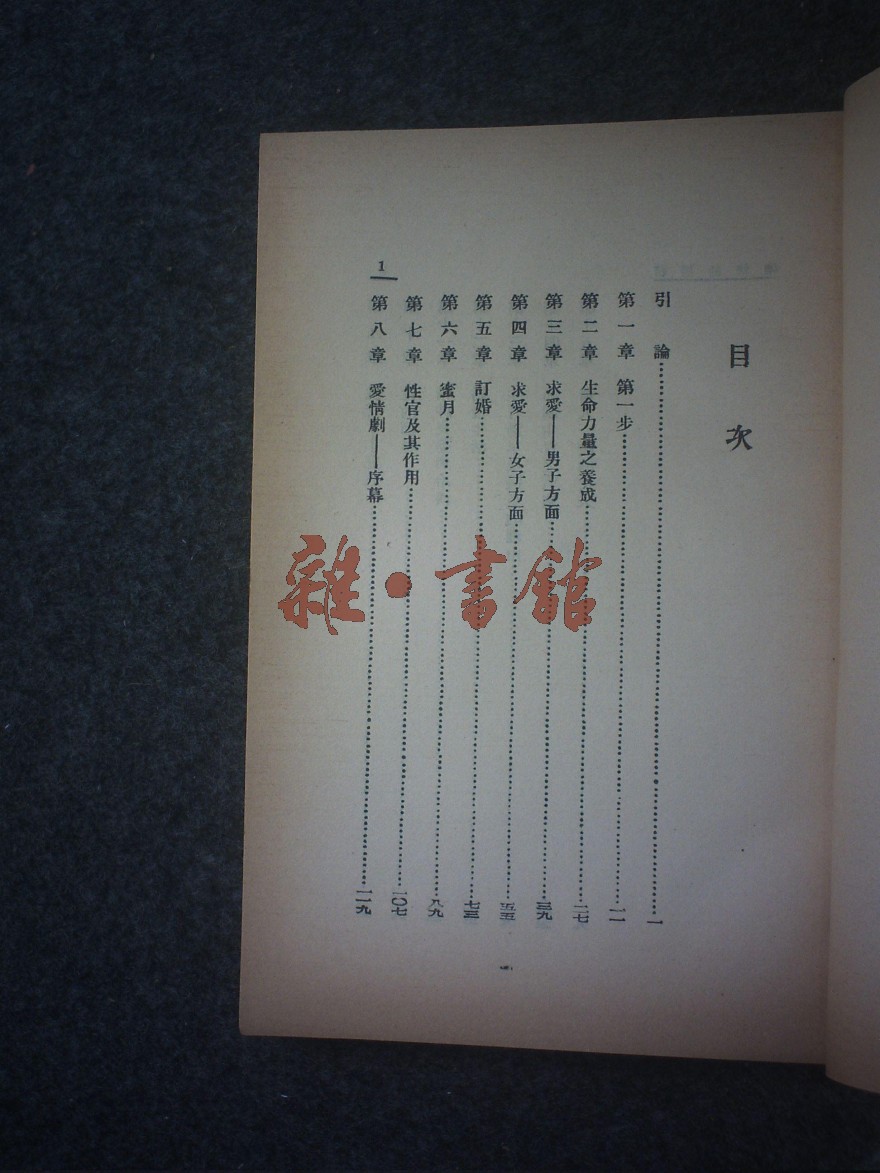 目次
引論……一
第一章 第一步……一一
第二章 生命力量之養成……二七
第三章 求愛——男子方面……三九
第四章 求愛——女子方面……五五
第五章 訂婚……七三
第六章 蜜月……八九
第七章 性官及其作用……一〇七
第八章 愛情劇——序幕……一一九
1
雜·書館